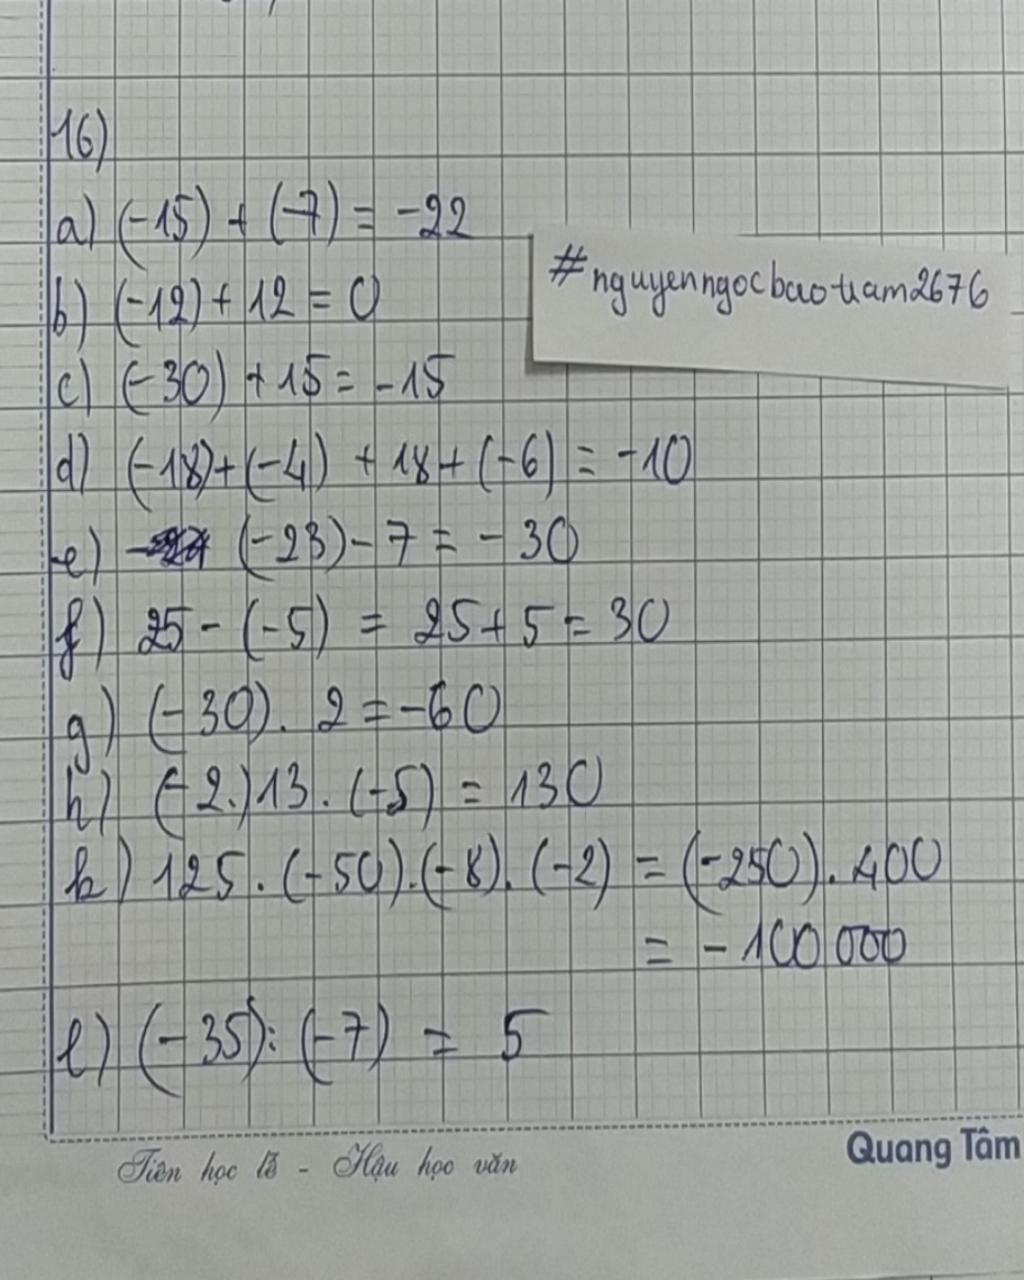 16)
a) (-15) + (-7) = -22
#nguyenngocbaotram2676
b) (-12) + 12 = 0
c) (-30) + 15 = -15
d) (-18)+(-4) + 18 + (-6) = -10
e) (-23) - 7 = - 30
f) 25 - (-5) = 25 + 5 = 30
g) (-30). 2 = -60
h) (-2.)13. (-5) = 130
k) 125. (-50).(-8). (-2) = (-250). 400
= - 100 000
l) (-35): (-7) = 5
Tiên học lễ - Hậu học văn
Quang Tâm